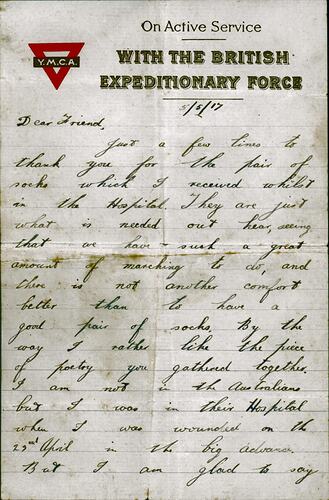 On Active Service
Y.M.C.A.
WITH THE BRITISH
EXPEDITIONARY FORCE
5/5/17
Dear Friend,
Just a few lines to
thank you for the pair of
socks which I received whilst
in the Hospital, They are just
what is needed out hear, seeing
that we have such a great
amount of marching to do, and
there is not another comfort
better than to have a
good pair of socks. By the
way I rather like the piece
of poetry you gathered together.
I am not in the Australians
but I was in their Hospital
when I was wounded on the
23rd April in the big advance.
But I am glad to say